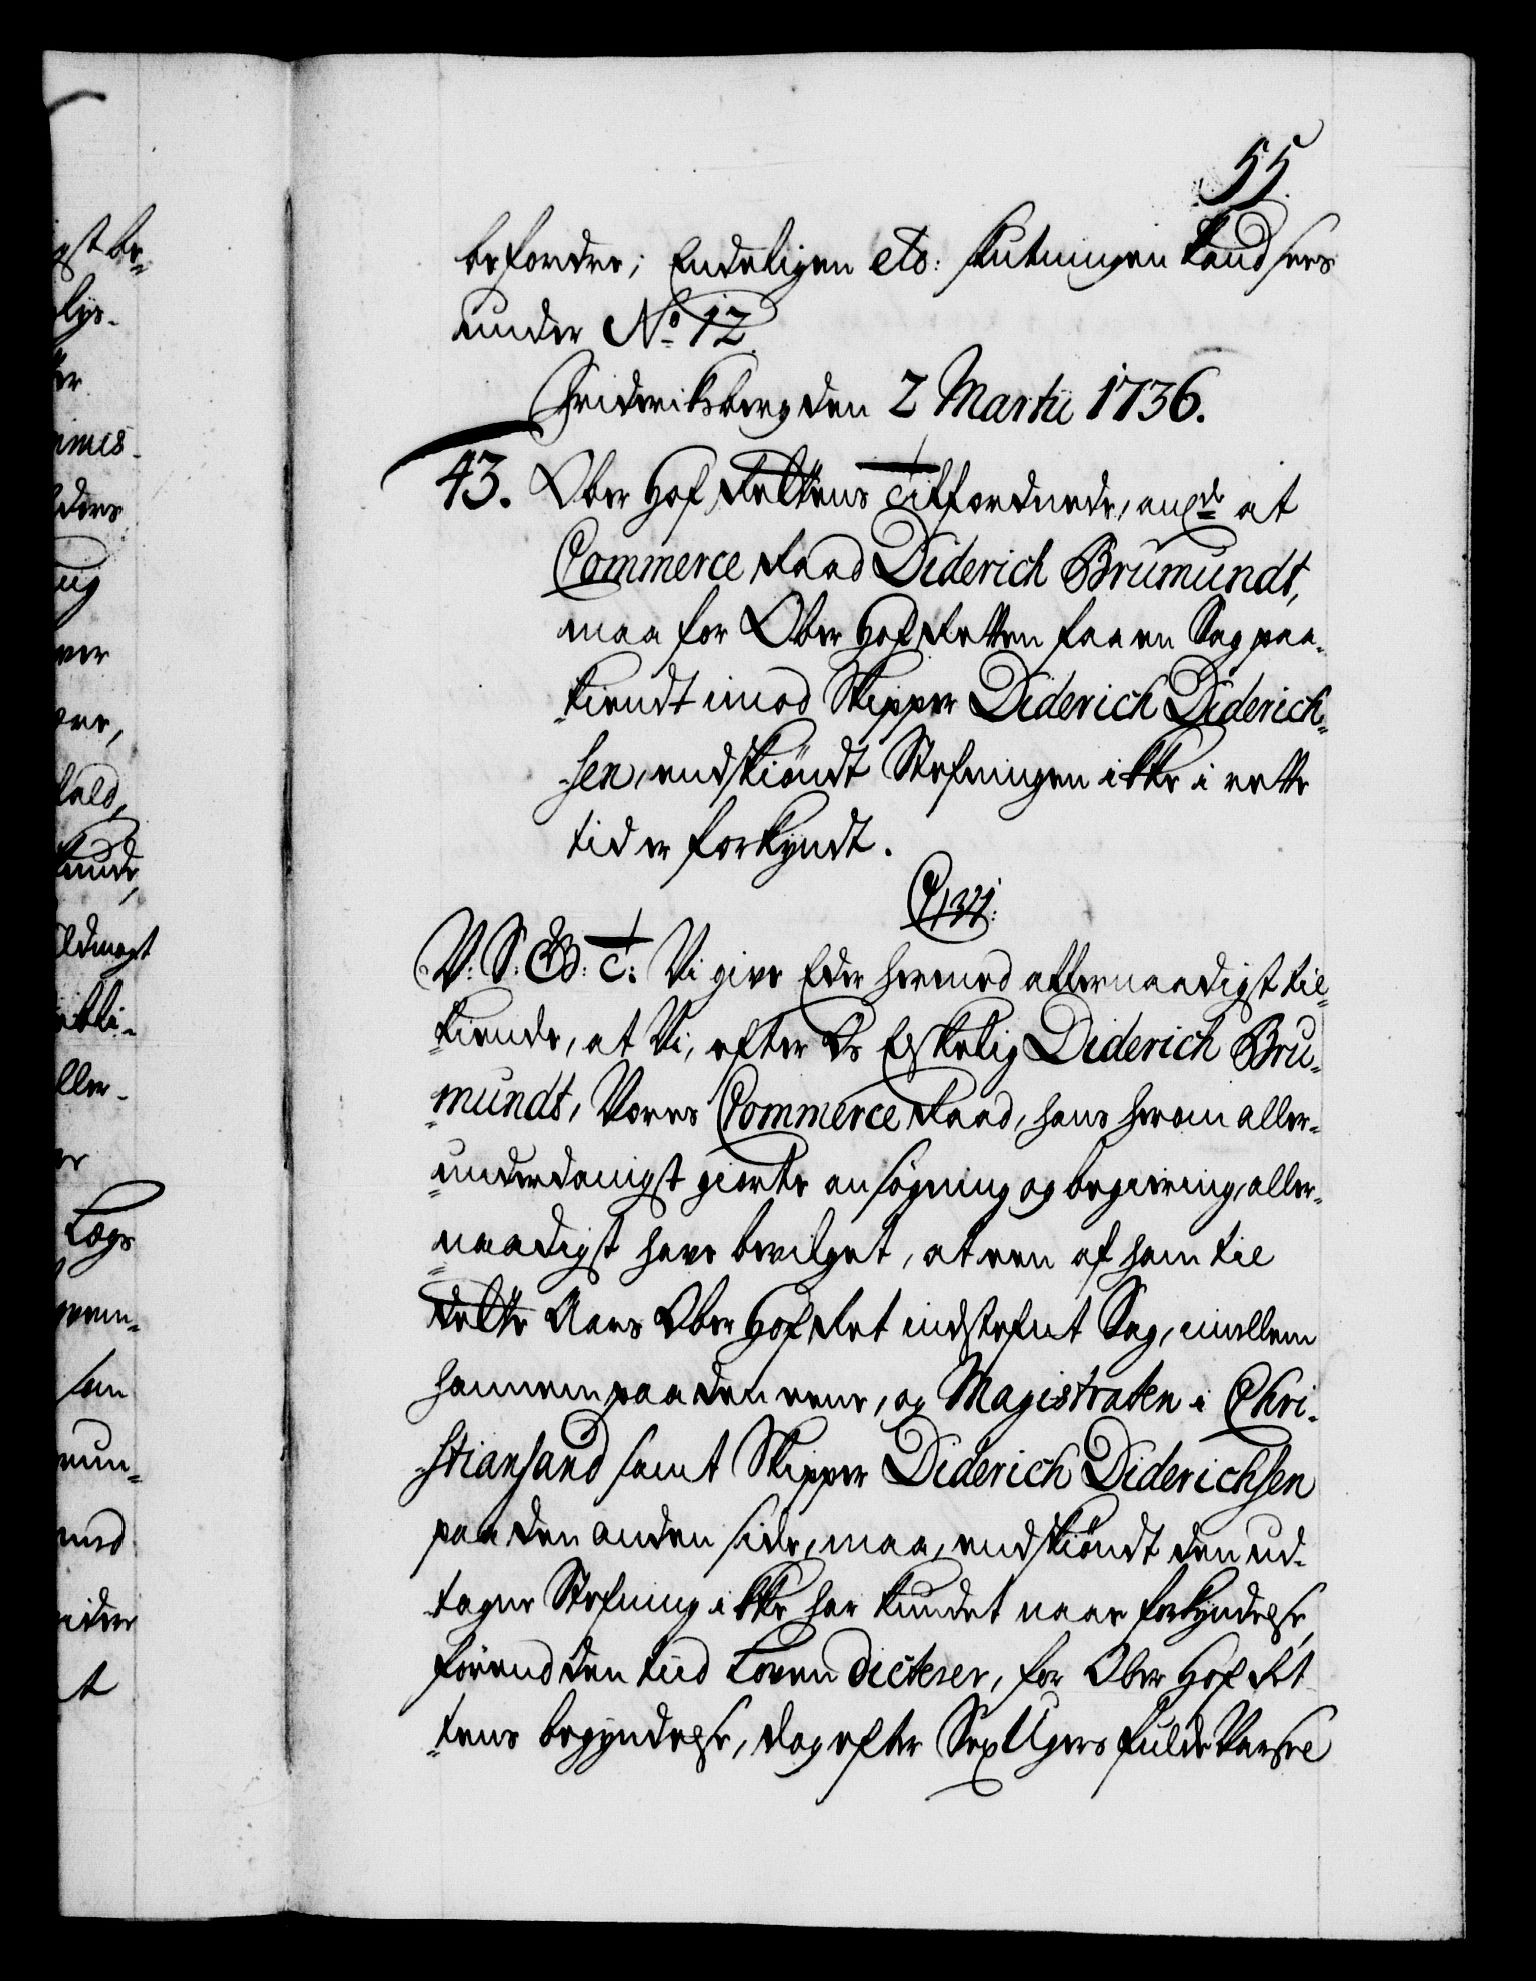 55.
befordre; Endeligen etc: slutningen kand sees
under No 12
Friderichsberg den 2 Martii 1736.
43. Ober Hof Rettens Tilforordnede, ang.de at
Commerce Raad Diderich Brümundt,
maa for Ober Hof Retten faa en Sag paa-
kiendt imod Skipper Diderich Diderich-
sen, endskiöndt Stefningen ikke i rette
tid er forkyndt.
C6.
V: S: G: T: Vi give Eder hermed allernaadigst til-
kiende, at Vi, efter Os Elskelig Diderich Bru-
mundt, Vores Commerce Raad, hans herom aller-
underdanigst giorte ansøgning og begiering, aller-
naadigst have bevilget, at een af ham til
dette Aars Ober Hof Ret indstefnt Sag, imellem
hannem paa den eene, og Magistraten i Chri-
stiansand samt Skipper Diderich Diderichsen
paa den anden side, maa, endskiöndt den ud-
tagne Stefning ikke har kundet naae forkyndelse,
förend den tiid Loven dicterer, for Ober Hof Ret-
tens begyndelse, dog efter Sex Ugers fulde Varsel